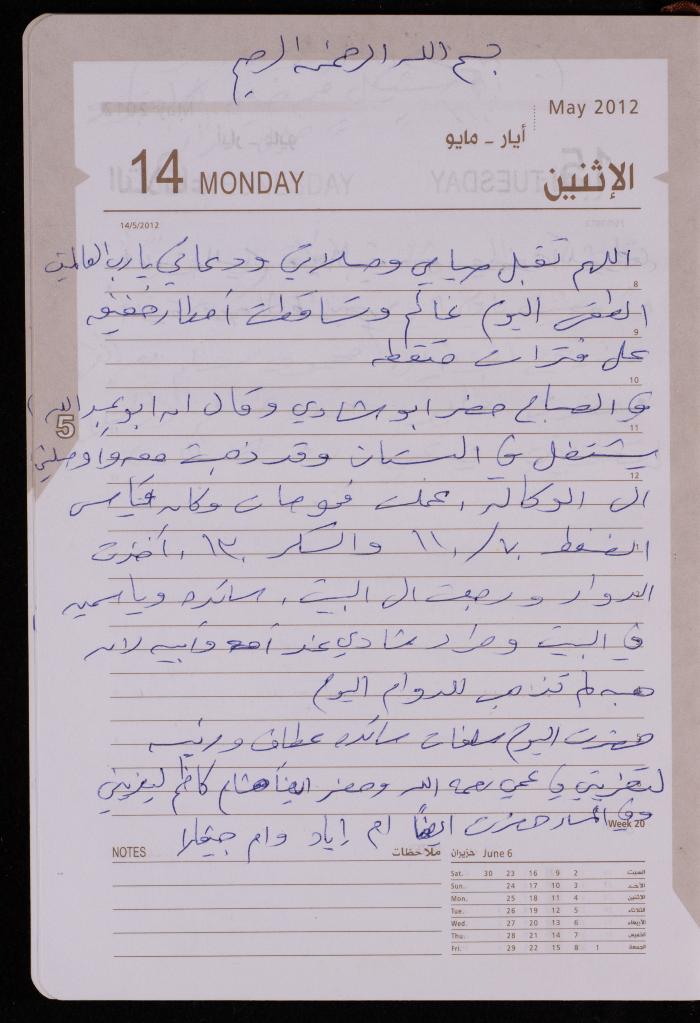 بسم الله الرحمن الرحيم
May 2012
أيار - مايو
14 MONDAY الإثنين
14/5/2012
اللهم تقبل صيامي وصلاتي ودعائي يا رب العالمين
8
الطقس اليوم غائم وتساقطت أمطار خفيفه
9
على فترات متقطعه
10
في الصباح حضر ابو شادي وقال انه ابو عبدالله
11
5
يشتغل في البستان وقد ذهبت معه وأوصلني
12
الى الوكالة، عملت فحوصات وكان قياس
الضغط ٧٠/١١٠ والسكر ١٣٠، أخذت
الدواء ورجعت الى البيت، سائده وياسمين
في البيت ومراد شادي عند أمه وأبيه لأنه
هبه لم تذهب للدوام اليوم
حضرت اليوم سلفات سائده عطاف ورئيسه
لتعزيتي في عمي نعمه الله وحضر ايضاً هشام كاظم ليعزيني
وفي المساء حضرت ايضاً ام إياد وام
Week 20
NOTES ملاحظات
حزيران June 6
Sat. 30 23 16 9 2 السبت
Sun. 24 17 10 3 الأحد
Mon. 25 18 11 4 الاثنين
Tue. 26 19 12 5 الثلاثاء
Wed. 27 20 13 6 الأربعاء
Thu. 28 21 14 7 الخميس
Fri. 29 22 15 8 1 الجمعة